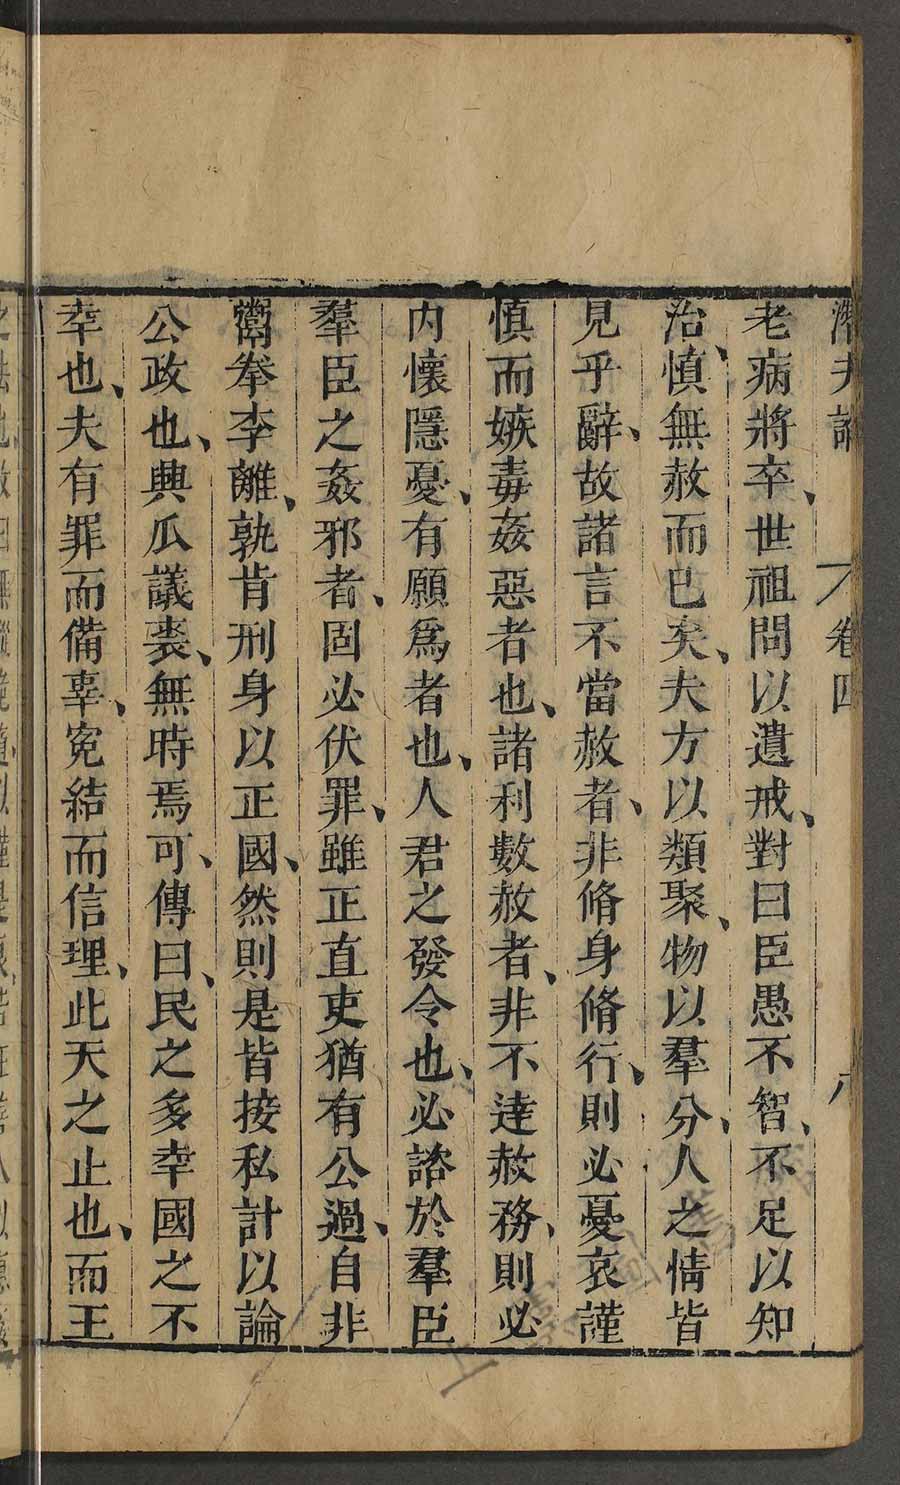 潛夫論 卷四 八
老病將卒、世祖問以遺戒、對曰臣愚不智、不足以知
治、慎無赦而已矣、夫方以類聚、物以羣分、人之情皆
見乎辭、故諸言不當赦者、非脩身脩行、則必憂哀謹
慎而嫉毒姦惡者也、諸利數赦者、非不達赦務、則必
內懷隱憂、有願爲者也、人君之發令也、必諮於羣臣
羣臣之姦邪者、固必伏罪、雖正直吏猶有公過、自非
鬻拳李離、孰肯刑身以正國、然則是皆接私計以論
公政也、與瓜議裘、無時焉可、傳曰、民之多幸國之不
幸也、夫有罪而備辜、寃結而信理、此天之止也、而王